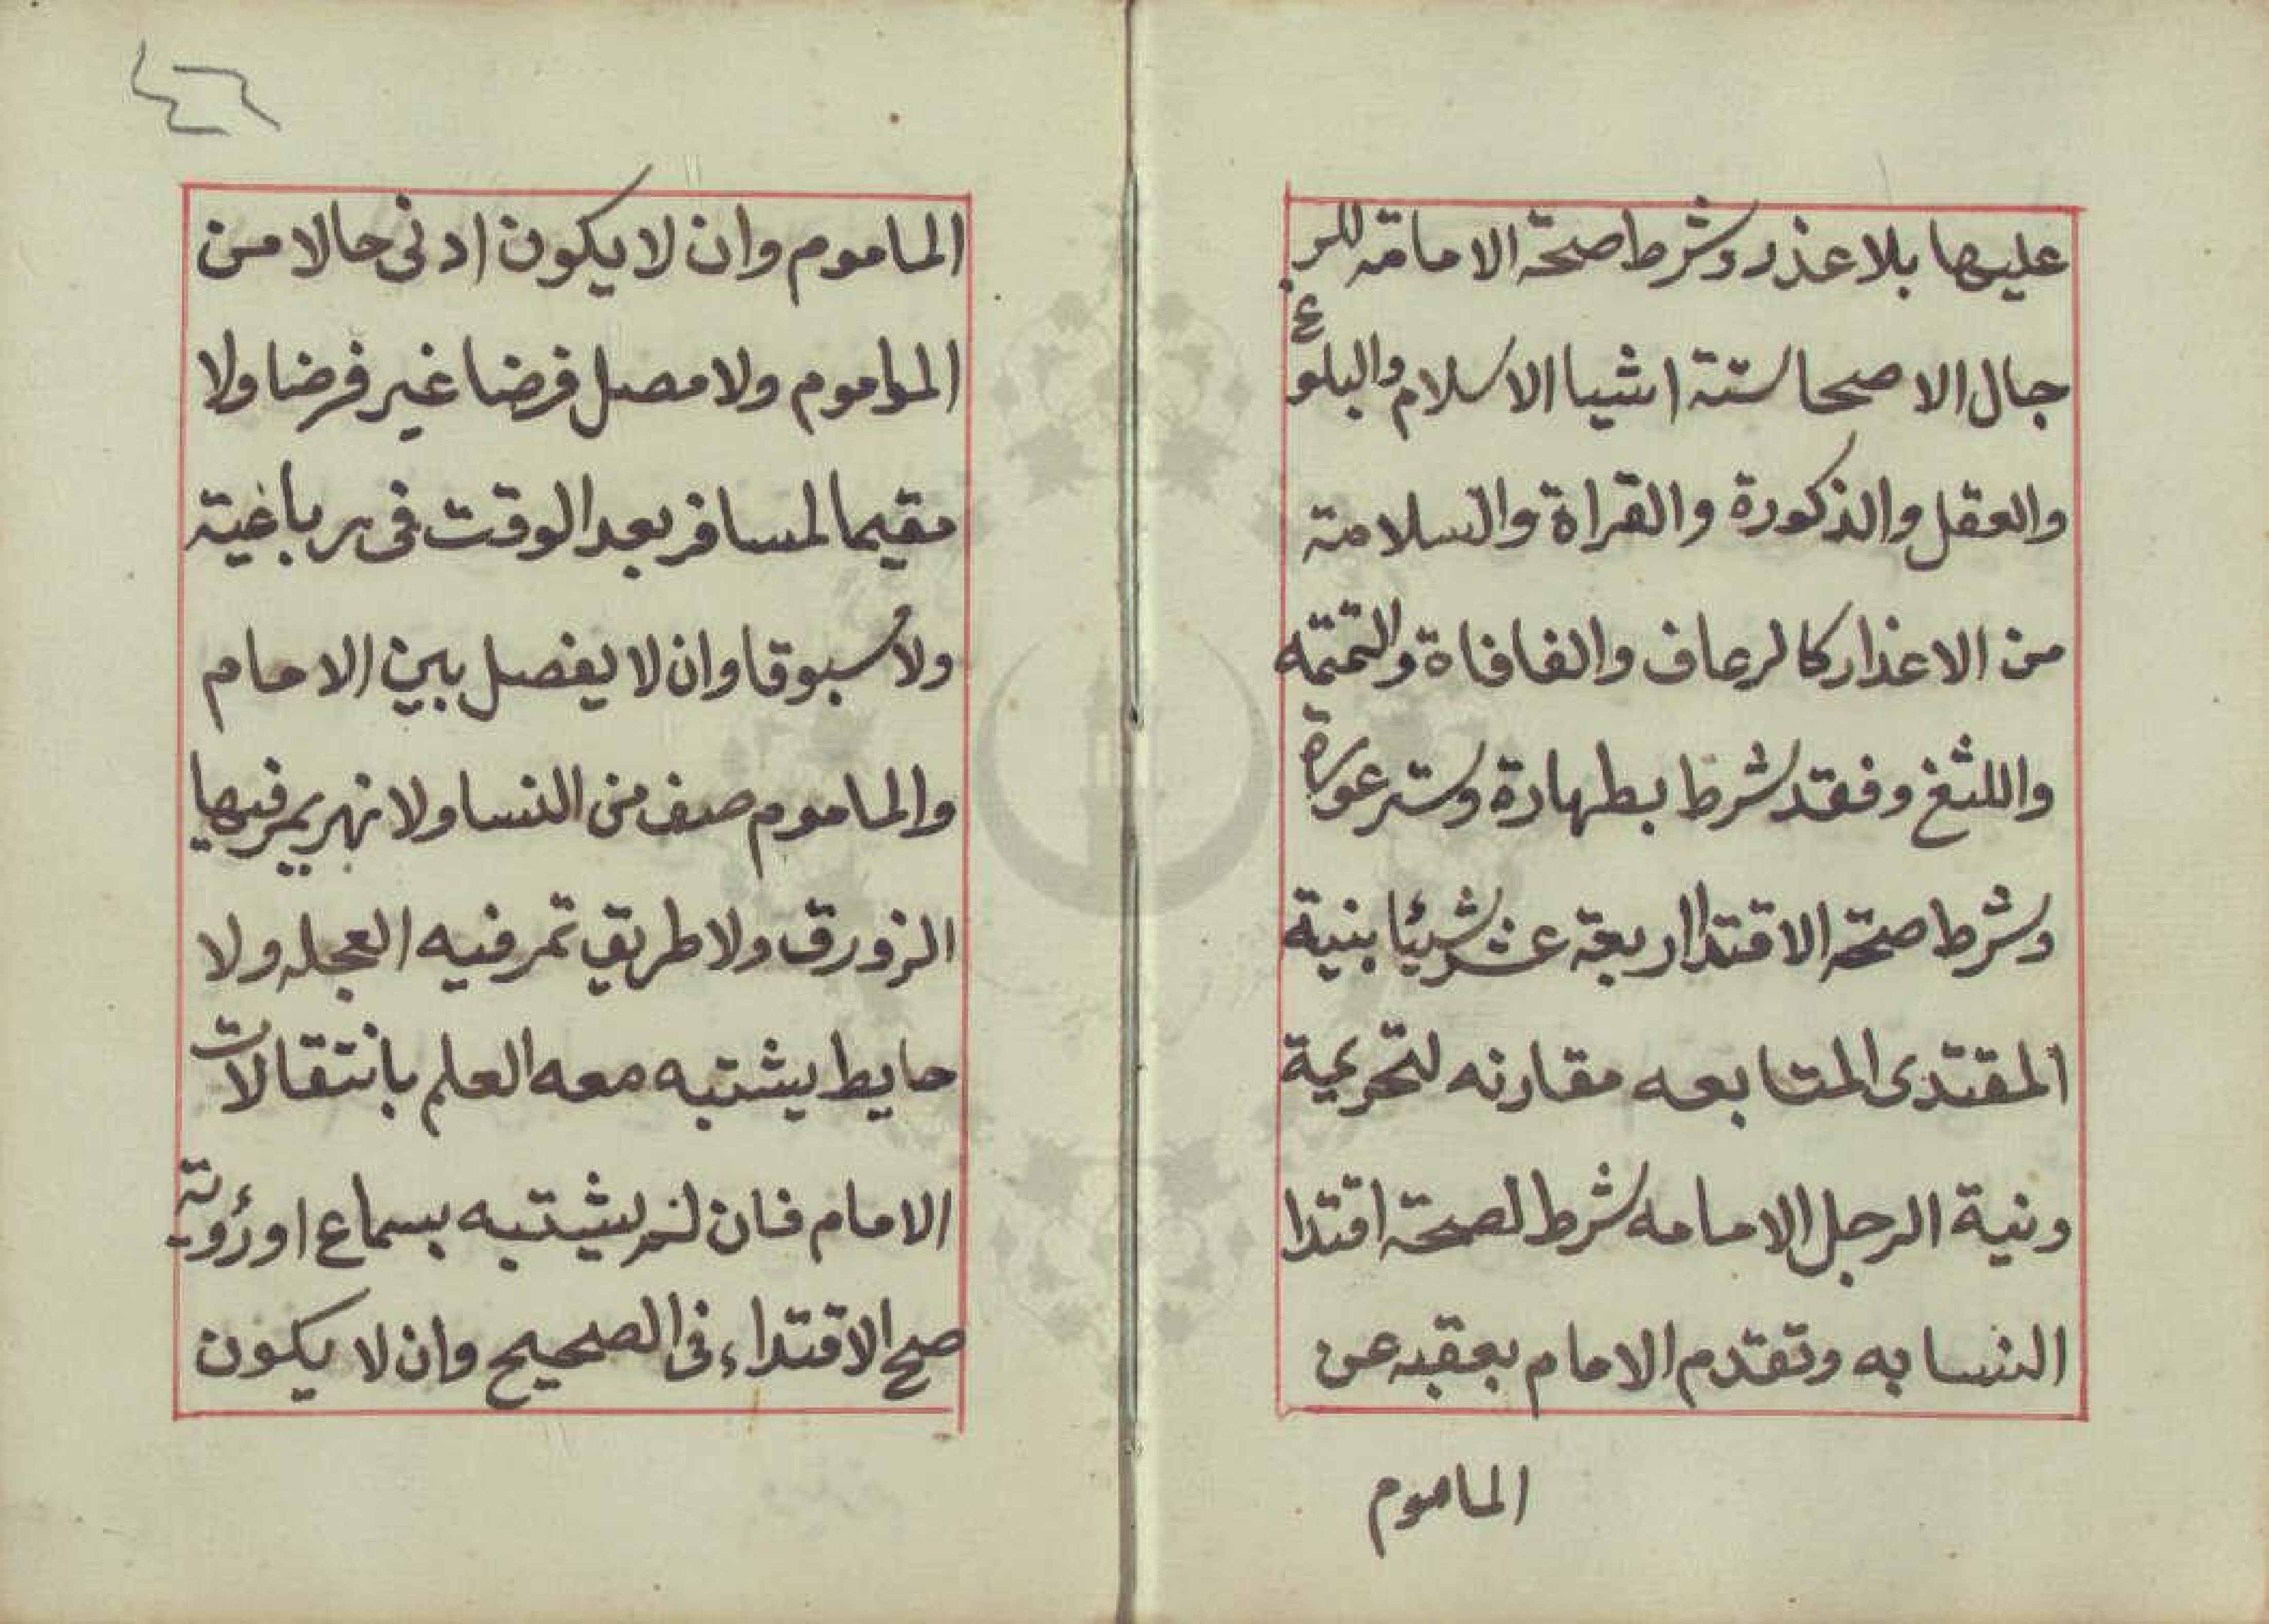 عليها بلا عذر وشرط صحة الامامة للر
جال الاصحا ستة اشيا الاسلام والبلوغ
والعقل والذكورة والقراة والسلامة
من الاعذار كالرعاف والفافاة والتمتمه
واللثغ وفقد شرط بطهارة وستر عورة
وشرط صحة الاقتدا اربعة عشر شيئا بنية
المقتدى المتابعه مقارنه لتحريمة
ونية الرجل الامامه شرط لصحة اقتدا
النسا به وتقدم الامام بعقبه عن
الماموم
٤٦
الماموم وان لا يكون ادنى حالا من
الماموم ولا مصل فرضا غير فرضا ولا
مقيما لمسافر بعد الوقت فى رباعية
ولا مسبوقا وان لا يفصل بين الامام
والماموم صف من النسا ولا نهر يمر فيها
الزورق ولا طريق تمر فيه العجله ولا
حايط يشتبه معه العلم بانتقالات
الامام فان لم يشتبه بسماع او رؤية
صح الاقتداء فى الصحيح وان لا يكون